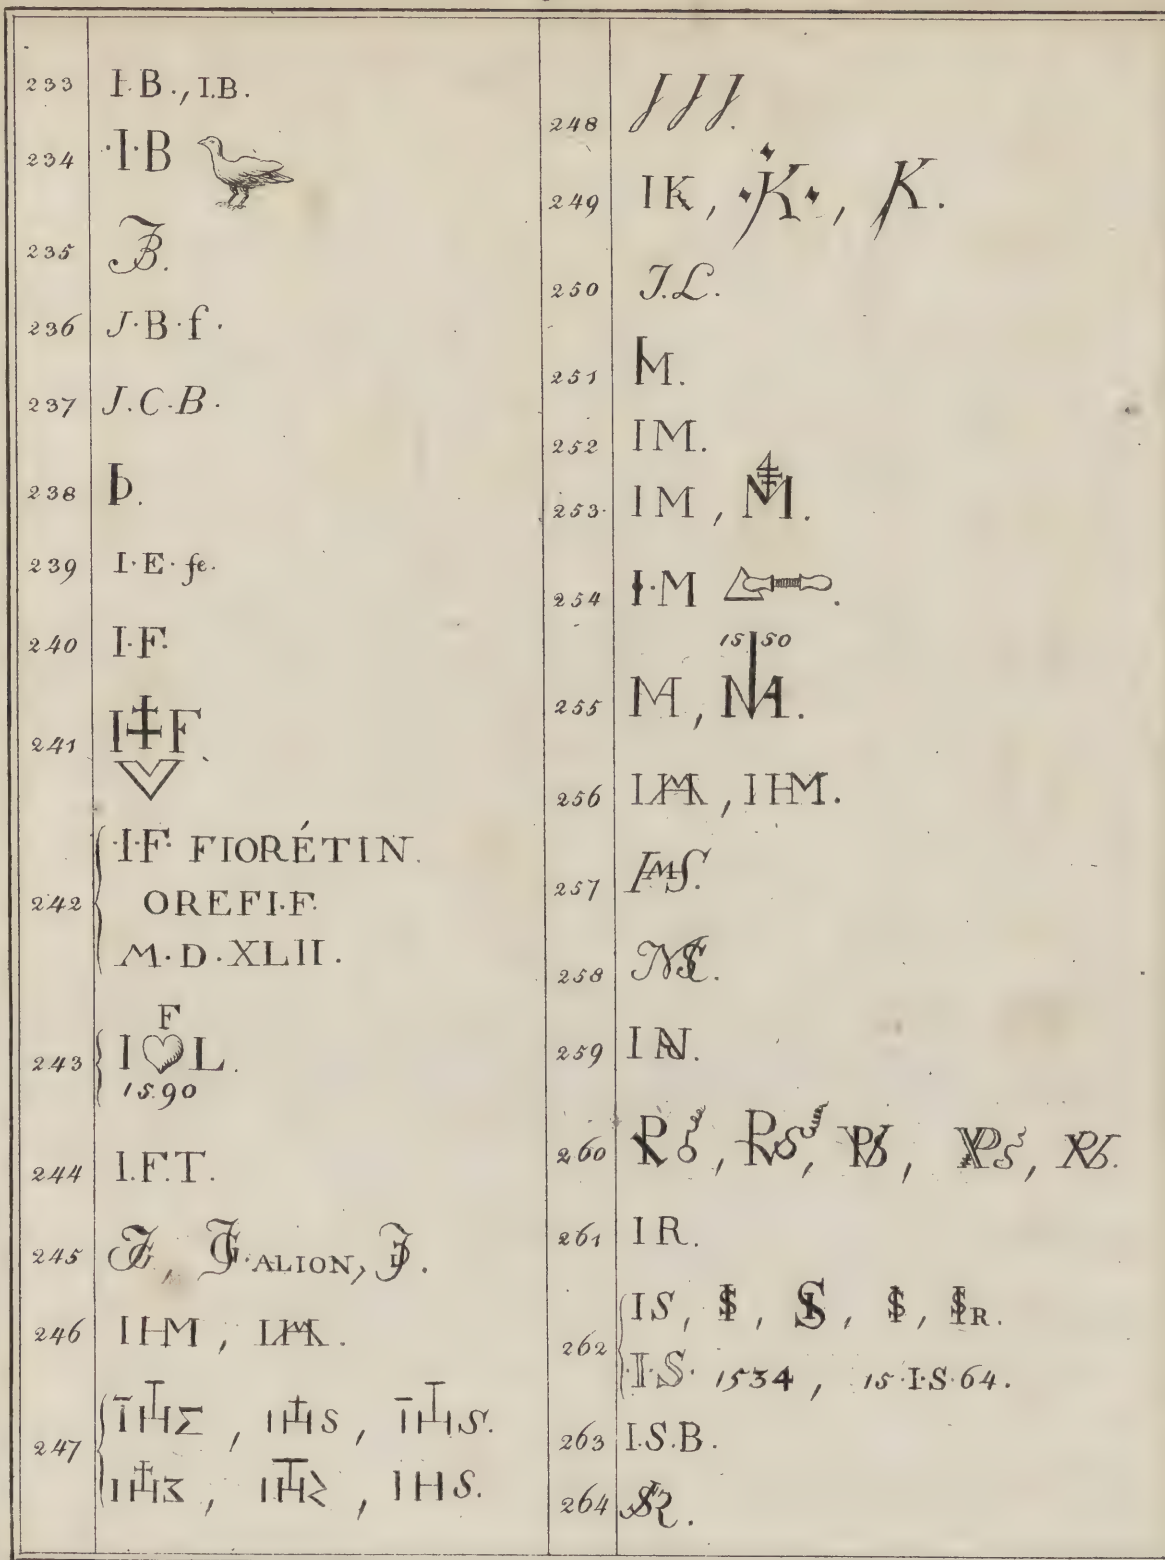 233 I·B., I.B.
234 ·I·B
235 JB.
236 J·B·f·
237 J.C·B·
238 Ь.
239 I·E·fe.
240 I·F·
241 I‡F.
242 ·I·F· FIORÉTIN.
OREFI·F·
M·D·XLII.
243 F
I ♡ L.
1590
244 I.F.T.
245 JG, JG·ALION, JD.
246 IHM, IHM.
247 IHΣ, IHS, IHS.
IHΣ, IHS, IHS.
248 JJJ.
249 IK, ·K·, K.
250 J.L.
251 M.
252 IM.
253 IM, M.
254 I·M.
15 50
255 M, M.
256 IHM, IHM.
257
258
259 I N.
260
261 I R.
262 IS, IS, IS, IS, ISR.
·I·S· 1534, 15·I·S·64.
263 I.S.B.
264